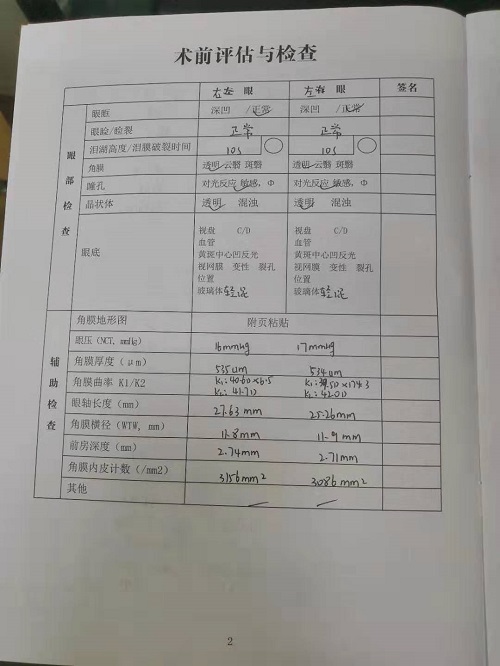 术前评估与检查
右左 眼 左右 眼 签名
眼部检查
眼眶 深凹 /正常 深凹 /正常
眼睑/睑裂 正常 正常
泪湖高度/泪膜破裂时间 10s 10s
角膜 透明 云翳 斑翳 透明 云翳 斑翳
瞳孔 对光反应 敏感, Φ 对光反应 敏感, Φ
晶状体 透明 混浊 透明 混浊
眼底
视盘 C/D 视盘 C/D
血管 血管
黄斑中心凹反光 黄斑中心凹反光
视网膜 变性 裂孔 视网膜 变性 裂孔
位置 位置
玻璃体轻混 玻璃体轻混
辅助检查
角膜地形图 附页粘贴
眼压 (NCT, mmHg) 16mmHg 17mmHg
角膜厚度 (μm) 535um 534um
角膜曲率 K1/K2 K1: 40.60 x 6.5
K2: 41.7D K2: 42.0D
眼轴长度 (mm) 27.63 mm 25.26 mm
角膜横径 (WTW, mm) 11.8 mm 11.9 mm
前房深度 (mm) 2.74mm 2.71mm
角膜内皮计数 (/mm2) 3156mm2 3086mm2
其他
2